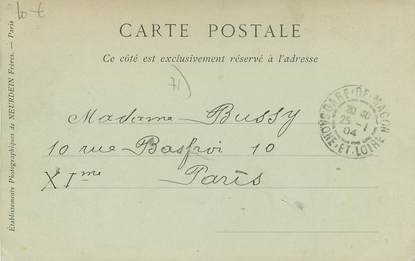 10 €
CARTE POSTALE
Ce côté est exclusivement réservé à l'adresse
71
Madame Bussy
10 rue Basfroi 10
XIme Paris
GARE-DE-MACON
25
04
SAONE-ET-LOIRE
Établissements Photographiques de NEURDEIN Frères. — Paris